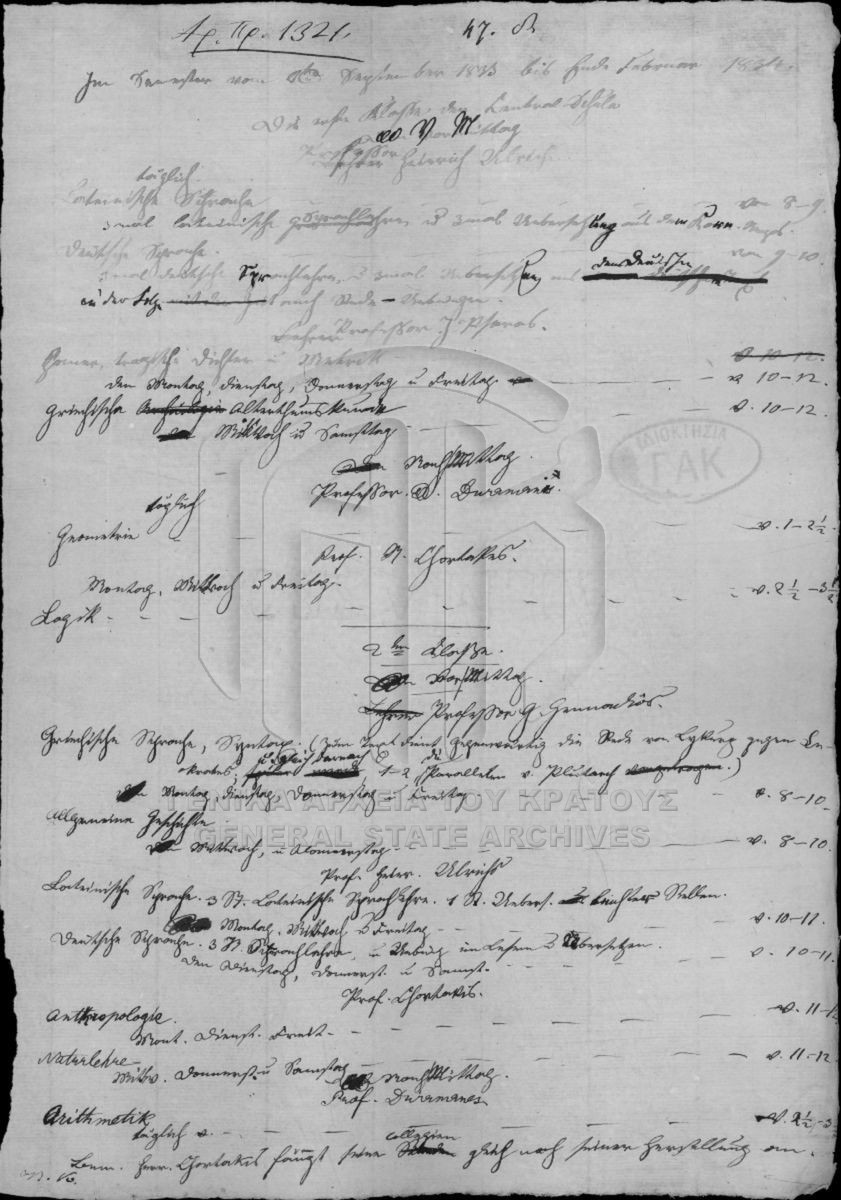 Αρ. Πρ. 1321.
47.
Im Semester vom September 1833 bis Ende Februar 1834.
Die erste Klasse der Central Schule
Vormittag
Professor Heinrich Ulrichs
täglich.
Lateinische Sprache von 8-9.
3 mal lateinische Sprachlehre u 3 mal Uebersetzung aus dem Corn. Neps.
Deutsche Sprache. von 9-10.
3 mal deutsche Sprachlehre, u 3 mal Uebersetzung aus dem Deutschen
in der Folge auch Rede-Uebungen.
Lehrer Professor J. Psaras.
Homer, tragische Dichter u Metrik v 10-12.
den Montag, Dienstag, Donnerstag u Freitag v 10-12.
Griechische Alterthumskunde v. 10-12.
Mittwoch u Samstag
Nachmittag.
Professor D. Duramanis.
täglich
Geometrie v. 1-2½.
Prof. N. Chortakis.
Montag, Mittwoch u Freitag.
Logik v. 2½-3½
2te Classe.
Vormittag.
Lehrer Professor G. Gennadios.
Griechische Sprache, Syntax. (Zum Text dient gegenwärtig die Rede von Lykurg gegen Leokrates; u gleich darnach 1-2 Parallelen v. Plutarch.)
Montag, Dienstag, Donnerstag u Freitag v. 8-10.
Allgemeine Geschichte
Mittwoch, u v. 8-10.
Prof. Heinr. Ulrichs
Lateinische Sprache. 3 St. Lateinische Sprachlehre. 1 St. Uebers. leichter Stellen.
Montag, Mittwoch u Freitag v. 10-11.
Deutsche Sprache. 3 St. Sprachlehre, u Uebung im Lesen u Übersetzen.
den Dienstag, Donnerst. u Samst. v. 10-11.
Prof. Chortakis.
Anthropologie. v. 11-12
Mont. Dienst. Freit.
Naturlehre v. 11-12
Mittw. Donnerst. u Samstag
Nachmittag.
Prof. Duramanes
Arithmetik v. 2½-3
täglich
Bem. Herr Chortakis fängt seine Collegien gleich nach seiner Herstellung an.
ΙΔΙΟΚΤΗΣΙΑ
ΓΑΚ
ΓΕΝΙΚΑ ΑΡΧΕΙΑ ΤΟΥ ΚΡΑΤΟΥΣ
GENERAL STATE ARCHIVES